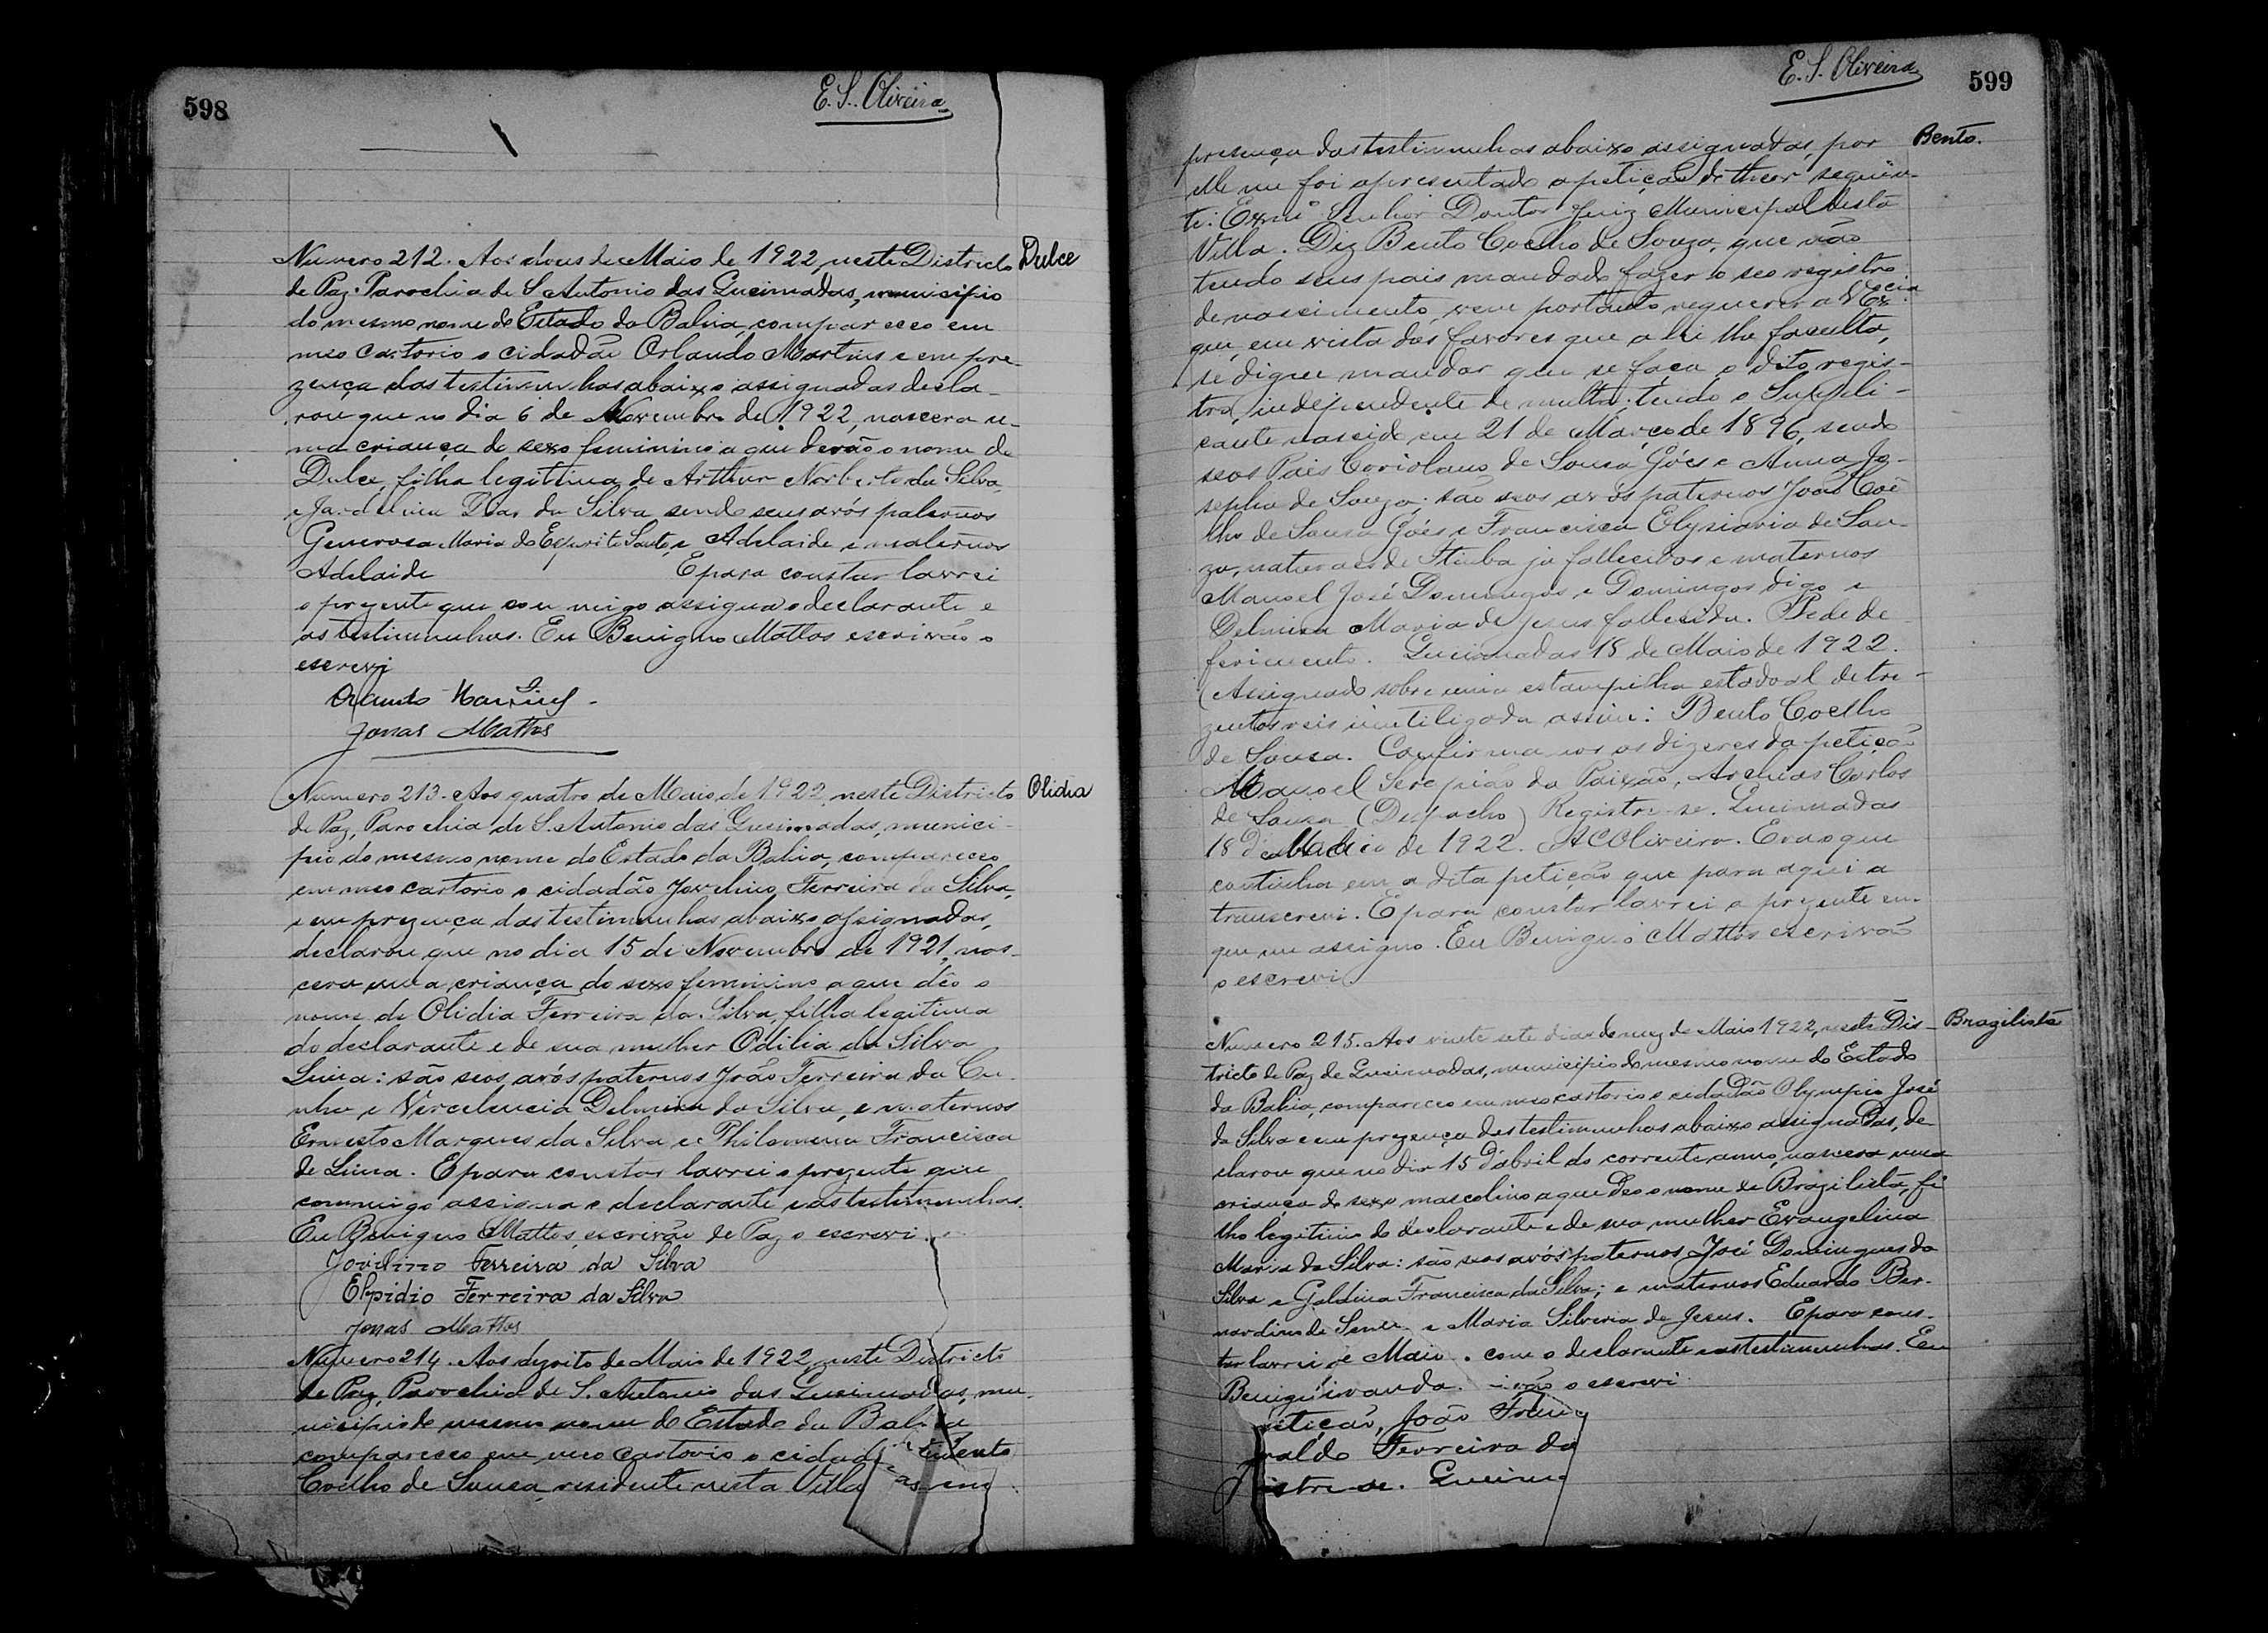 598
E. S. Oliveira
Numero 212. Aos dous de Maio de 1922, neste Districto
Dulce
de Paz. Parochia de S. Antonio das Queimadas, municipio
do mesmo nome do Estado da Bahia, compareceo em
meo cartorio o cidadão Orlando Martins e em pre
zença das testimunhas abaixo assignadas decla-
rou que no dia 6 de Novembro de 1922, nascera u-
ma criança do sexo feminino a que derão o nome de
Dulce, filha legitima de Arthur Norberto da Silva
e da Silva sendo seus avós paternos
Generosa Maria do Espirito Santo, e Adelaide e maternos
Adelaide E para constar lavrei
o prezente que commigo assigna o declarante e
as testimunhas. Eu Benigno Mattos escrivão o
escrevi
Orlando Martins
Jonas Mattos
Numero 213. Aos quatro de Maio de 1922, neste Districto
Olidia
de Paz, Parochia de S. Antonio das Queimadas, munici-
pio do mesmo nome do Estado da Bahia, compareceo
em meo cartorio o cidadão Jovelino Ferreira da Silva,
e em prezença das testimunhas abaixo assignadas,
declarou que no dia 15 de Novembro de 1921, nas-
cera uma criança do sexo feminino a que déo o
nome de Olidia Ferreira da Silva, filha legitima
do declarante e de sua mulher Odilia da Silva
Lima: são seos avós paternos João Ferreira da Cu-
nha e Vercelencia Delmira da Silva, e maternos
Ernesto Marques da Silva e Philomena Francisca
de Lima. E para constar lavrei o prezente que
commigo assigna o declarante e as testimunhas.
Eu Benigno Mattos, escrivão de Paz o escrevi.
Jovilino Ferreira da Silva
Elpidio Ferreira da Silva
Jonas Mattos
Numero 214. Aos dezoito de Maio de 1922, neste Districto
de Paz, Parochia de S. Antonio das Queimadas, mu-
nicipio do mesmo nome do Estado da Bahia
compareceo em meo cartorio o cidad Bento
Coelho de Souza, residente nesta Villa em
E. S. Oliveira
599
presença das testimunhas abaixo assignadas, por
Bento.
elle me foi apresentado a petição do theor seguin-
te: Exmº Senhor Doutor Juiz Municipal desta
Villa. Diz Bento Coelho de Souza, que não
tendo seus pais mandado fazer o seo registro
de nascimento, vem portanto requerer a V Excia
que, em vista dos favores que a lei lhe faculta,
se digne mandar que se faça o dito regis-
tro, independente de multa; tendo o Suppli-
cante nascido em 21 de Março de 1896, sendo
seos Pais Coriolano de Souza Góes e Anna Jo-
sepha de Souza; são seos avós paternos João Coê
lho de Souza Góes e Francisca Elysiaria de Sou-
za, naturaes de Itiuba já fallecidos e maternos
Manoel José Domingos e Domingos digo e
Delmira Maria de Jesus fallecida. Pede de
ferimento. Queimadas 18 de Maio de 1922.
(Assignado sobre uma estampilha estadoal de tre-
zentos reis inutilizada assim: Bento Coelho
de Souza. Confirmamos os dizeres da petição
Manoel Serapião da Paixão, Archias Carlos
de Souza (Despacho) Registre-se. Queimadas
18 de Maio de 1922. A C Oliveira. Era o que
continha em a dita petição que para aqui a
transcrevi. E para constar lavrei o prezente em
que me assigno. Eu Benigno Mattos escrivão
o escrevi
Numero 215. Aos vinte sete dias do mez de Maio 1922, neste Dis-
Brazilista
tricto de Paz de Queimadas, municipio do mesmo nome do Estado
da Bahia, compareceo em meo cartorio o cidadão Olympio José
da Silva e em prezença das testimunhas abaixo assignadas, de-
clarou que no dia 15 d'abril do corrente anno, nascera uma
criança do sexo masculino a que deo o nome de Brazilista, fi
lho legitimo do declarante e de sua mulher Evangelina
Maria da Silva: são seos avós paternos José Domingues da
Silva e Galdina Francisca da Silva; e maternos Eduardo Ber-
nardino de Senna e Maria Silveria de Jesus. E para cons-
tar lavrei de Maio. com o declarante e as testimunhas. Eu
Benig o escrevi
petição, João Fran
naldo Ferreira da
istre-se. Queim